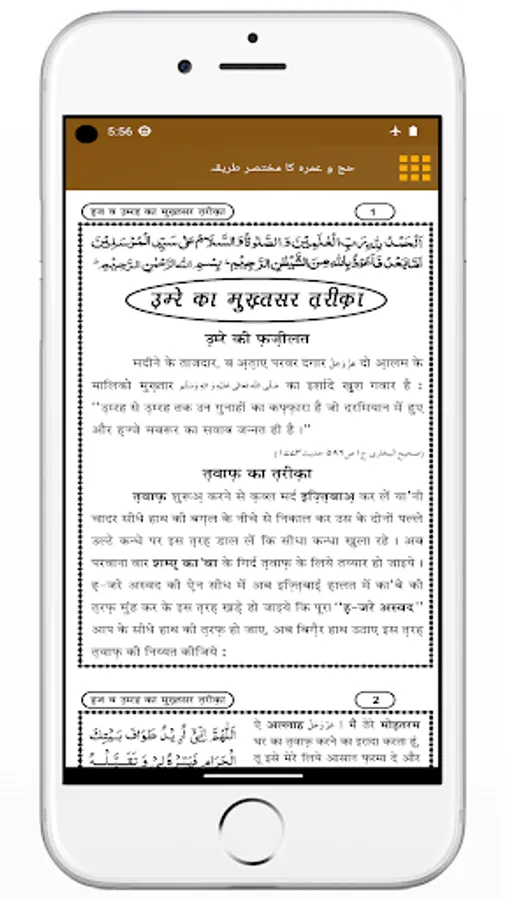 5:56
حج و عمرہ کا مختصر طریقہ
हज व उ़म्रह का मुख़्तसर त़रीक़ा 1
اَلْحَمْدُ لِلّٰهِ رَبِّ الْعٰلَمِيْنَ وَالصَّلٰوةُ وَالسَّلَامُ عَلٰى سَيِّدِ الْمُرْسَلِيْنَ
اَمَّا بَعْدُ فَاَعُوْذُ بِاللّٰهِ مِنَ الشَّيْطٰنِ الرَّجِيْمِ ط بِسْمِ اللّٰهِ الرَّحْمٰنِ الرَّحِيْمِ ط
उ़म्रे का मुख़्तसर त़रीक़ा
उ़म्रे की फ़ज़ीलत
मदीने के ताजदार, ब अ़त़ाए परवर दगार عَزَّوَجَلَّ दो आ़लम के
मालिको मुख़्तार صلى الله تعالى عليه واله وسلم का इर्शादे ख़ुश गवार है :
‘‘उ़म्रह से उ़म्रह तक उन गुनाहों का कफ़्फ़ारा है जो दरमियान में हुए
और ह़ज्जे मबरूर का सवाब जन्नत ही है।’’
(صحیح البخاری ج۱ ص۵۸۶ حدیث۱۷۷۳)
त़वाफ़ का त़रीक़ा
त़वाफ़ शुरूअ़ करने से क़ब्ल मर्द इज़्त़िबाअ़ कर लें या'नी
चादर सीधे हाथ की बग़ल के नीचे से निकाल कर उस के दोनों पल्ले
उल्टे कन्धे पर इस त़रह़ डाल लें कि सीधा कन्धा खुला रहे। अब
परवाना वार शम्ए़ का'बा के गिर्द त़वाफ़ के लिये तय्यार हो जाइये।
ह़-जरे अस्वद की ऐ़न सीध में अब इज़्त़िबाई़ ह़ालत में का'बे की
त़रफ़ मुंह कर के इस त़रह़ खड़े हो जाइये कि पूरा ‘‘ह़-जरे अस्वद’’
आप के सीधे हाथ की त़रफ़ हो जाए, अब बिग़ैर हाथ उठाए इस त़रह़
त़वाफ़ की निय्यत कीजिये :
हज व उ़म्रह का मुख़्तसर त़रीक़ा 2
اَللّٰهُمَّ اِنِّيْ اُرِيْدُ طَوَافَ بَيْتِكَ
الْحَرَامِ فَيَسِّرْهُ لِيْ وَتَقَبَّلْهُ
ऐ अल्लाह عَزَّوَجَلَّ ! मैं तेरे मोह़तरम
घर का त़वाफ़ करने का इरादा करता हूं,
तू इसे मेरे लिये आसान फ़रमा दे और